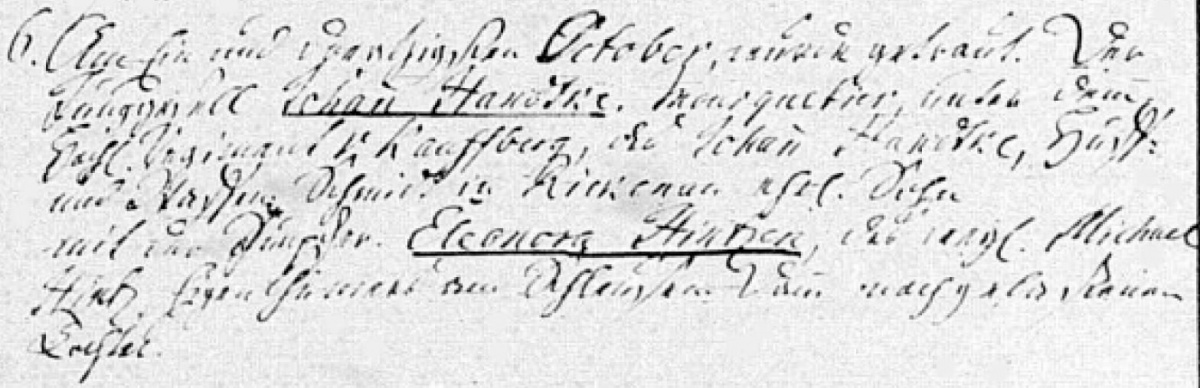 6. Am Ein und dreißigsten October, wurde getraut. Der
Junggesell Johan̄ Handtke. Mousquetier, unter dem
Hochl. Regiment v. Kauffberg, des Johan̄ Handtke, Huff-
und Waffen Schmidt in Rickenau ehel. Sohn
mit der Jungfer. Eleonora Hintzen, des weyl. Michael
Hintz, Eigenthümers am Damm nachgelassenen
Tochter.